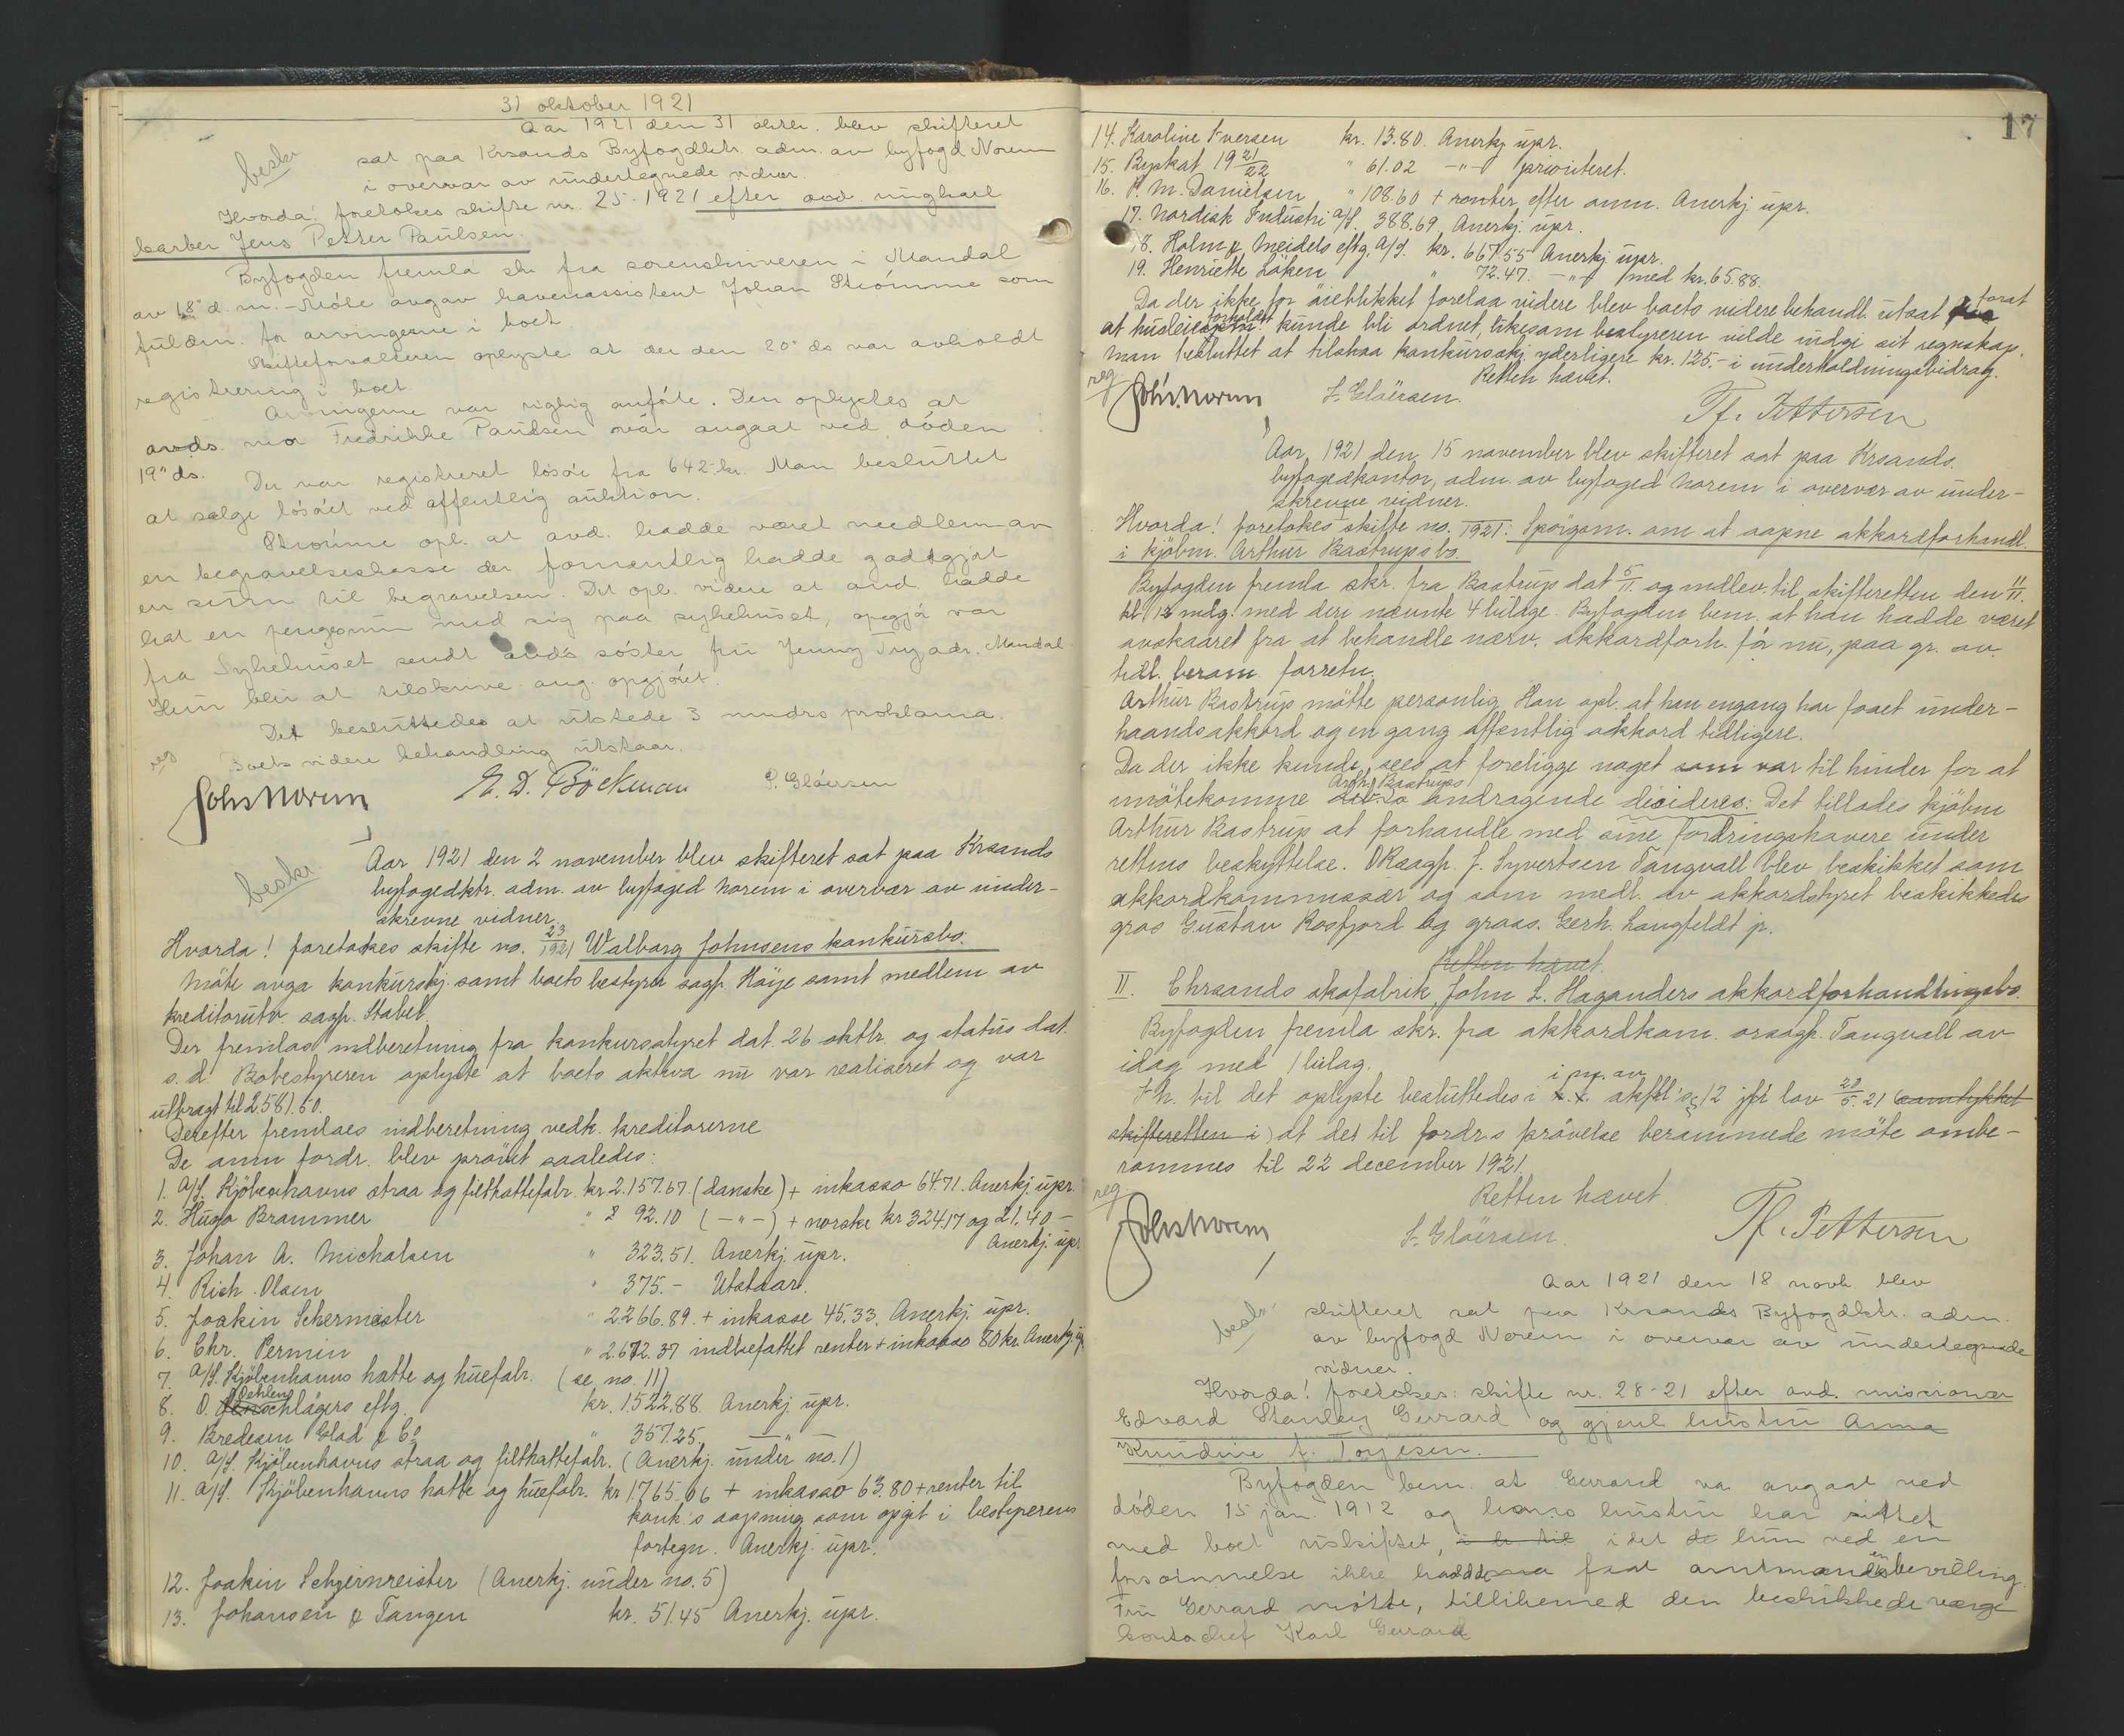 31 oktober 1921
Aar 1921 den 31 oktbr. blev skifteret
sat paa Krsands Byfogdktr. adm. av byfogd Norem
i overvær av undertegnede vidner.
beskr
Hvorda! foretokes skifte nr. 25-1921 efter avd. ungkarl
barber Jens Petter Paulsen.
Byfogden fremla skr. fra sorenskriveren i Mandal
av 18' d.m. - Møte avgav havneassistent Johan Strömme som
fuldm. for arvingerne i boet.
Skifteforvalteren oplyste at der den 20' ds var avholdt
registrering i boet
Arvingerne var rigtig anførte. Den oplystes at
avds. mor Fredrikke Paulsen var avgaat ved døden
19' ds.
Der var registreret løsøre fra 642- kr. Man besluttet
at sælge løsøret ved offentlig auktion.
Strömme opl. at avd. hadde været medlem av
en begravelseskasse der formentlig hadde godtgjort
en sum til begravelsen. Det opl. videre at avd. hadde
hat en pengesum med sig paa sykehuset, opgjør var
fra Sykehuset sendt avd's søster fru Jenny Try adr. Mandal
Hun blir at tilskrive ang. opgjøret.
Det besluttedes at utstede 3 mndrs proklama.
Boets videre behandling utstaar.
reg
Johs Norem E. D. Böckman S. Glöersen
beskr
Aar 1921 den 2 november blev skifteret sat paa Krsands
byfogedktr. adm. av byfoged Norem i overvær av under-
skrevne vidner.
Hvorda! foretokes skifte no. 23/1921 Walborg Johnsens konkursbo.
Møte avga konkurskj. samt boets bestyrer sagf. Höije samt medlem av
kreditorutv. sagf. Stabel.
Der fremlaes indberetning fra konkursstyret dat. 26 oktbr. og status dat.
s.d. Bobestyreren oplyste at boets aktiva nu var realiseret og var
utbragt til 2581.50.
Derefter fremlaes indberetning vedk. kreditorerne
De anm. fordr. blev prøvet saaledes:
1. A/S. Kjöbenhavns straa og filthattefabr. kr. 2.157.67. (danske) + inkasso 64.71. Anerkj. upr.
2. Hugo Brammer " 292.10 (-"-) + norske kr 324.17 og 21.40 -
Anerkj. upr.
3. Johan A. Michalsen " 323.51. Anerkj. upr.
4. Rich. Olsen " 375.- Utstaar.
5. Joakin Schermeister " 2266.89. + inkasso 45.33. Anerkj. upr.
6. Chr. Permin " 2.672.37 indbefattet renter + inkasso 80 kr. Anerkj. upr
7. A/S. Kjöbenhavns hatte og huefabr. (se no. 11)
8. O. Oehlenschlägers eftg. kr. 1522.88. Anerkj. upr.
9. Bredesen Glad & Co " 357.25. -"-
10. A/S. Kjöbenhavns straa og filthattefabr. (Anerkj. under no. 1)
11. A/S. Kjöbenhavns hatte og huefabr. kr 1.765.06 + inkasso 63.80 + renter til
konk's aapning som opgit i bestyrerens
fortegn. Anerkj. upr.
12. Joakin Schjermeister (Anerkj. under no. 5)
13. Johansen & Tangen kr. 51.45 Anerkj. upr.
17
14. Karoline Iversen kr. 13.80. Anerkj. upr.
15. Byskat 1921/22 " 61.02 -"- prioriteret.
16. P. M. Danielsen " 108.60 + renter efter anm. Anerkj. upr.
17. Nordisk Industri A/S. 388.69. Anerkj. upr.
18. Holm & Meidels eftg. A/S. kr. 667.55 Anerkj. upr.
19. Henriette Löken " 72.47. -"- med kr. 65.88.
Da der ikke for øieblikket forelaa videre blev boets videre behandl. utsat forat
at husleieforholdet kunde bli ordnet, likesom bestyreren vilde indgi sit regnskap.
Man besluttet at tilstaa konkurskj. yderligere kr. 125.- i underholdningsbidrag.
Retten hævet.
reg.
Johs. Norem S. Glöersen. Tf. Pettersen
Aar 1921 den 15 november blev skifteret sat paa Krsands.
byfogedkontor, adm. av byfoged Norem i overvær av under-
skrevne vidner.
Hvorda! foretokes skifte no. 1921: Spörgsm. om at aapne akkordforhandl.
i kjöbm. Arthur Bastrups bo.
Byfogden fremla skr. fra Bastrup dat 5/11. og indlev. til skifteretten den 11/11.
kl. 12 mdg. med deri nævnte 4 bilage. Byfogden bem. at han hadde været
avskaaret fra at behandle nærv. akkordforh. før nu, paa gr. av.
tidl. beram. forretn.
Arthur Bastrup mötte personlig. Han opl. at han engang har faaet under-
haandsakkord og en gang offentlig akkord tidligere.
Da der ikke kunde sees at foreligge noget som var til hinder for at
imötekomme Arth. Bastrups andragende decideres: Det tillades kjöbm
Arthur Bastrup at forhandle med sine fordringshavere under
rettens beskyttelse. ORsagf. J. Syvertsen Tangvall blev beskikket som
akkordkommissær og som medl. av akkordstyret beskikkedes
gros Gustav Rosfjord og gross. Gerh. Langfeldt jr.
Retten hævet.
II. Chrsands skofabrik, John L. Haganders akkordforhandlingsbo.
Byfogden fremla skr. fra akkordkom. orsagf. Tangvall av
idag med 1 bilag.
I h. til det oplyste besluttedes i i.. i my. av akfhl's § 12 jfr lov 20/5. 21 samtykket
skifteretten i) at det til fordr.s prøvelse berammede möte ombe-
rammes til 22 december 1921.
Retten hævet.
reg.
Johs Norem S. Glöersen. Tf. Pettersen
Aar 1921 den 18 novb. blev
beskr
skifteret sat paa Krsands Byfogdktr. adm.
av byfogd Norem i overvær av undertegnede
vidner.
Hvorda! foretokes: skifte nr. 28-21 efter avd. missionær
Edvard Stanley Gerrard og gjenl. hustru Anna
Knudine f. Torjesen.
Byfogden bem. at Gerrard va avgaat ved
døden 15 jan. 1912 og hans hustru har sittet
med boet uskiftet, idet hun ved en
forsømmelse ikke hadde faat amtmandens bevilling.
Fru Gerrard mötte, tillikemed den beskikkede værge
Karl Gerrard